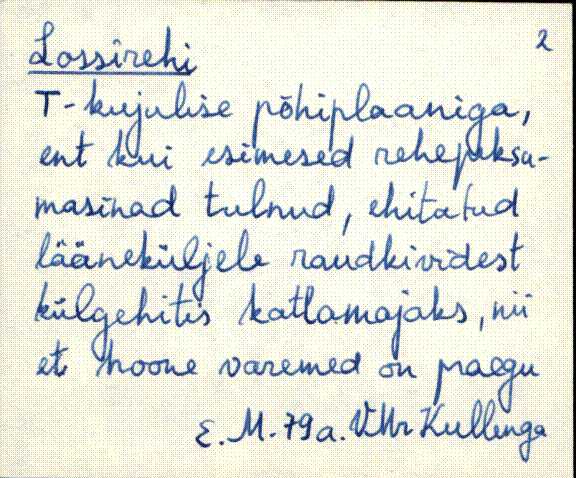 2
Lossirehi
T-kujulise põhiplaaniga,
ent kui esimesed rehepeksu-
masinad tulnud, ehitatud
lääneküljele raudkividest
külgehitis katlamajaks, nii
et hoone varemed on praegu
E. M. 79 a. VMr Kullenga